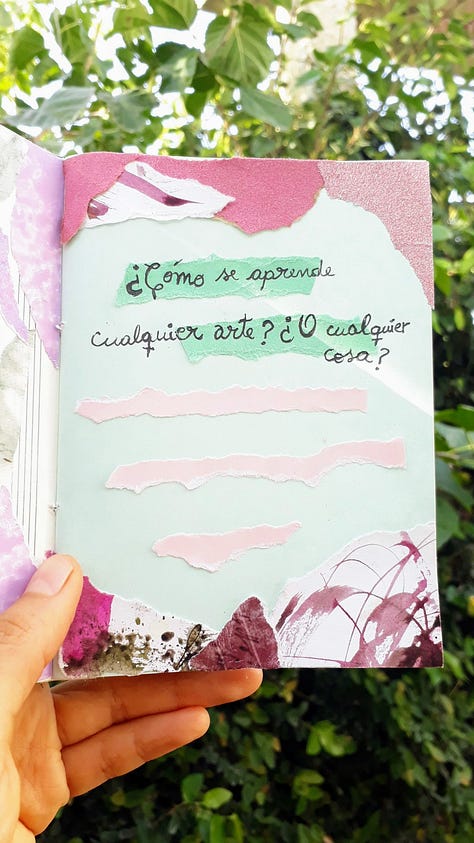 ¿Cómo se aprende
cualquier arte? ¿O cualquier
cosa?